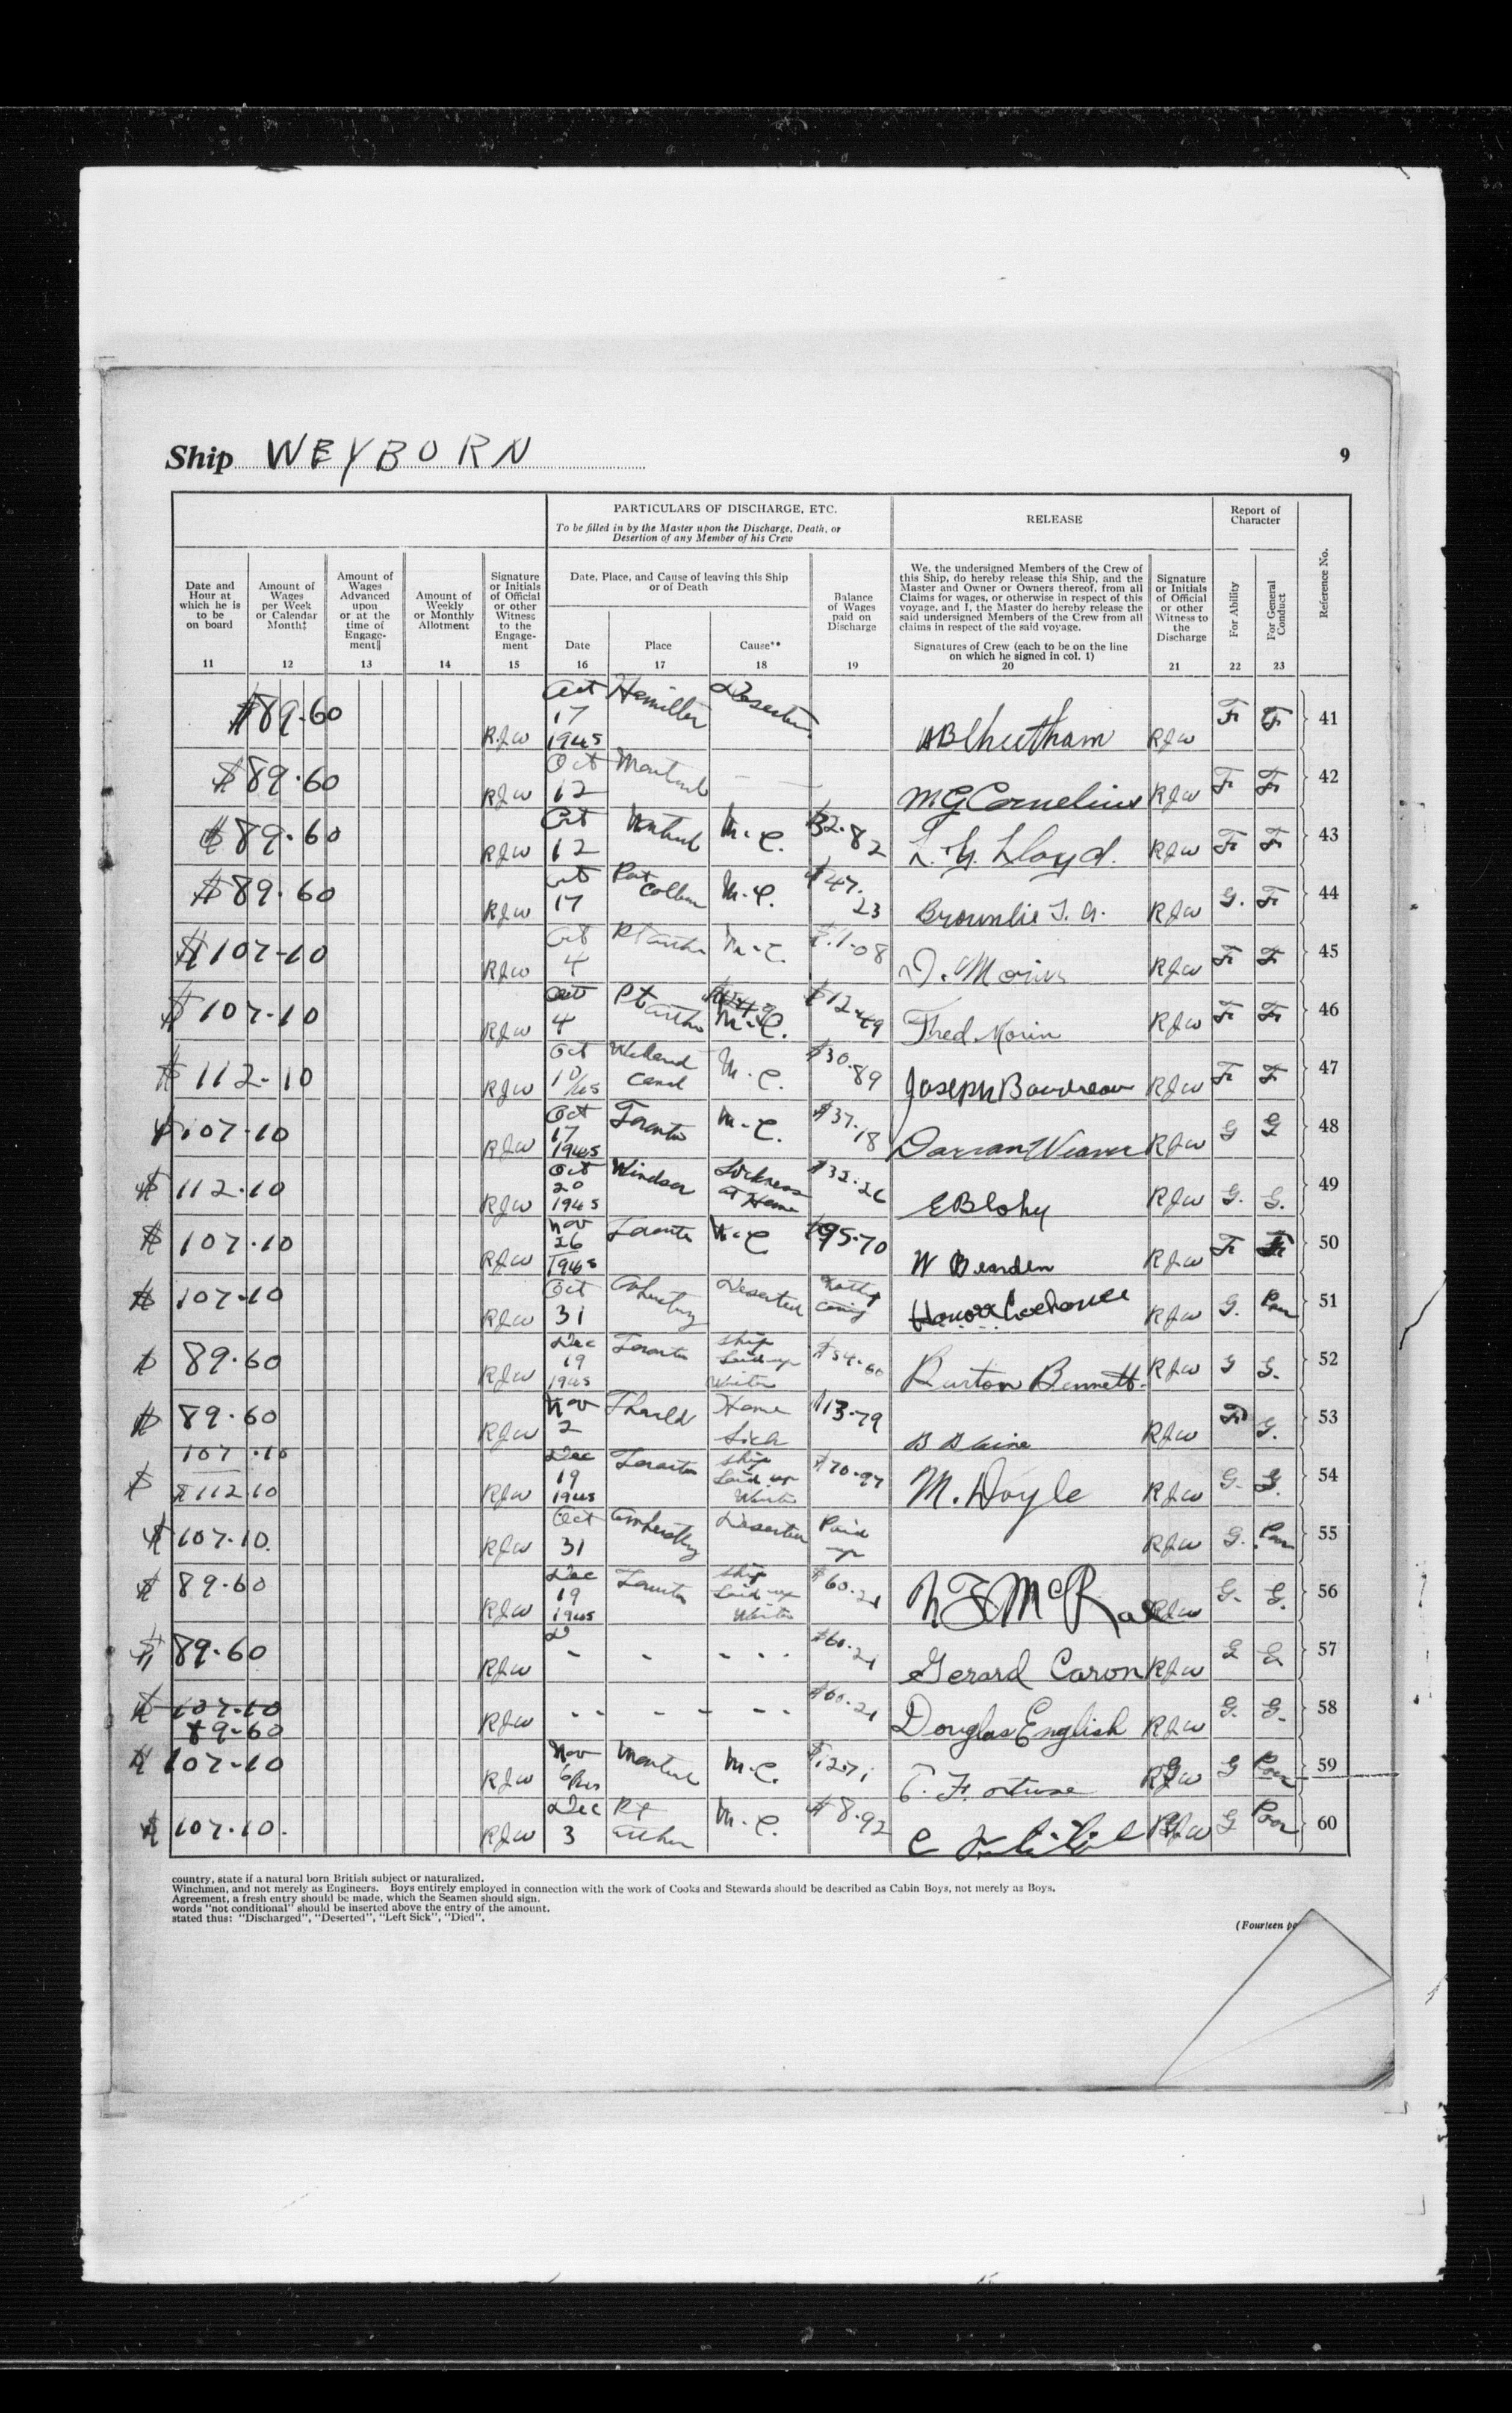 Ship WEYBORN
9
PARTICULARS OF DISCHARGE, ETC.
To be filled in by the Master upon the Discharge, Death, or
Desertion of any Member of his Crew
RELEASE
Report of
Character
Date and
Hour at
which he is
to be
on board
11
Amount of
Wages
per Week
or Calendar
Month‡
12
Amount of
Wages
Advanced
upon
or at the
time of
Engage-
ment‖
13
Amount of
Weekly
or Monthly
Allotment
14
Signature
or Initials
of Official
or other
Witness
to the
Engage-
ment
15
Date, Place, and Cause of leaving this Ship
or of Death
Date
16
Place
17
Cause**
18
Balance
of Wages
paid on
Discharge
19
We, the undersigned Members of the Crew of
this Ship, do hereby release this Ship, and the
Master and Owner or Owners thereof, from all
Claims for wages, or otherwise in respect of this
voyage, and I, the Master do hereby release the
said undersigned Members of the Crew from all
claims in respect of the said voyage.
Signatures of Crew (each to be on the line
on which he signed in col. 1)
20
Signature
or Initials
of Official
or other
Witness to
the
Discharge
21
For Ability
22
For General
Conduct
23
Reference No.
$89.60 RJW Oct 17 1945 Hamilton ABCheetham RJW 41
$89.60 RJW Oct 12 Montreal MG Cornelius RJW 42
$89.60 RJW Oct 12 M.C. $32.82 Lloyd. RJW 43
$89.60 RJW Oct 17 Port M.C. $47.23 Brownlie RJW G. 44
$107-10 RJW Oct 4 Pt Arthur M.C. $.1-08 RJW 45
$107-10 RJW Oct 4 Pt Arthur M.C. $12.49 Fred Morin RJW 46
$112-10 RJW Oct 10/45 Welland Canal M.C. $30.89 Joseph Boudreau RJW 47
$107-10 RJW Oct 17 1945 Toronto M.C. $37.18 RJW G G 48
$112.10 RJW Oct 20 1945 Windsor Sickness at Home $32.26 RJW G. G. 49
$107.10 RJW Nov 26 1945 Toronto M.C $95.70 W Bearden RJW 50
$107-10 RJW Oct 31 Deserted RJW G. Poor 51
$89.60 RJW Dec 19 1945 Toronto Ship Laid-up Winter $54.60 Burton Bennett. RJW G G. 52
$89.60 RJW Nov 2 Thorold Home Sick $13.79 B Blaine RJW G. 53
107.10 $112.10 RJW Dec 19 1945 Toronto Ship Laid up Winter $70.97 M. Doyle RJW G. G. 54
$107.10. RJW Oct 31 Amherstbg Deserted Paid up RJW G. Poor 55
$89.60 RJW Dec 19 1945 Toronto Ship Laid-up Winter $60.21 McRae RJW G. G. 56
$89.60 RJW $60.21 Gerard Caron RJW G G 57
$107-10 89-60 RJW $60.21 Douglas English RJW G. G. 58
$107-10 RJW Nov Montreal M.C. $12.71 Fortune RJW G Poor 59
$107.10. RJW Dec 3 Pt Arthur M.C. $8.92 RJW G Poor 60
country, state if a natural born British subject or naturalized.
Winchmen, and not merely as Engineers. Boys entirely employed in connection with the work of Cooks and Stewards should be described as Cabin Boys, not merely as Boys.
Agreement, a fresh entry should be made, which the Seamen should sign.
words "not conditional" should be inserted above the entry of the amount.
stated thus: "Discharged", "Deserted", "Left Sick", "Died".
(Fourteen